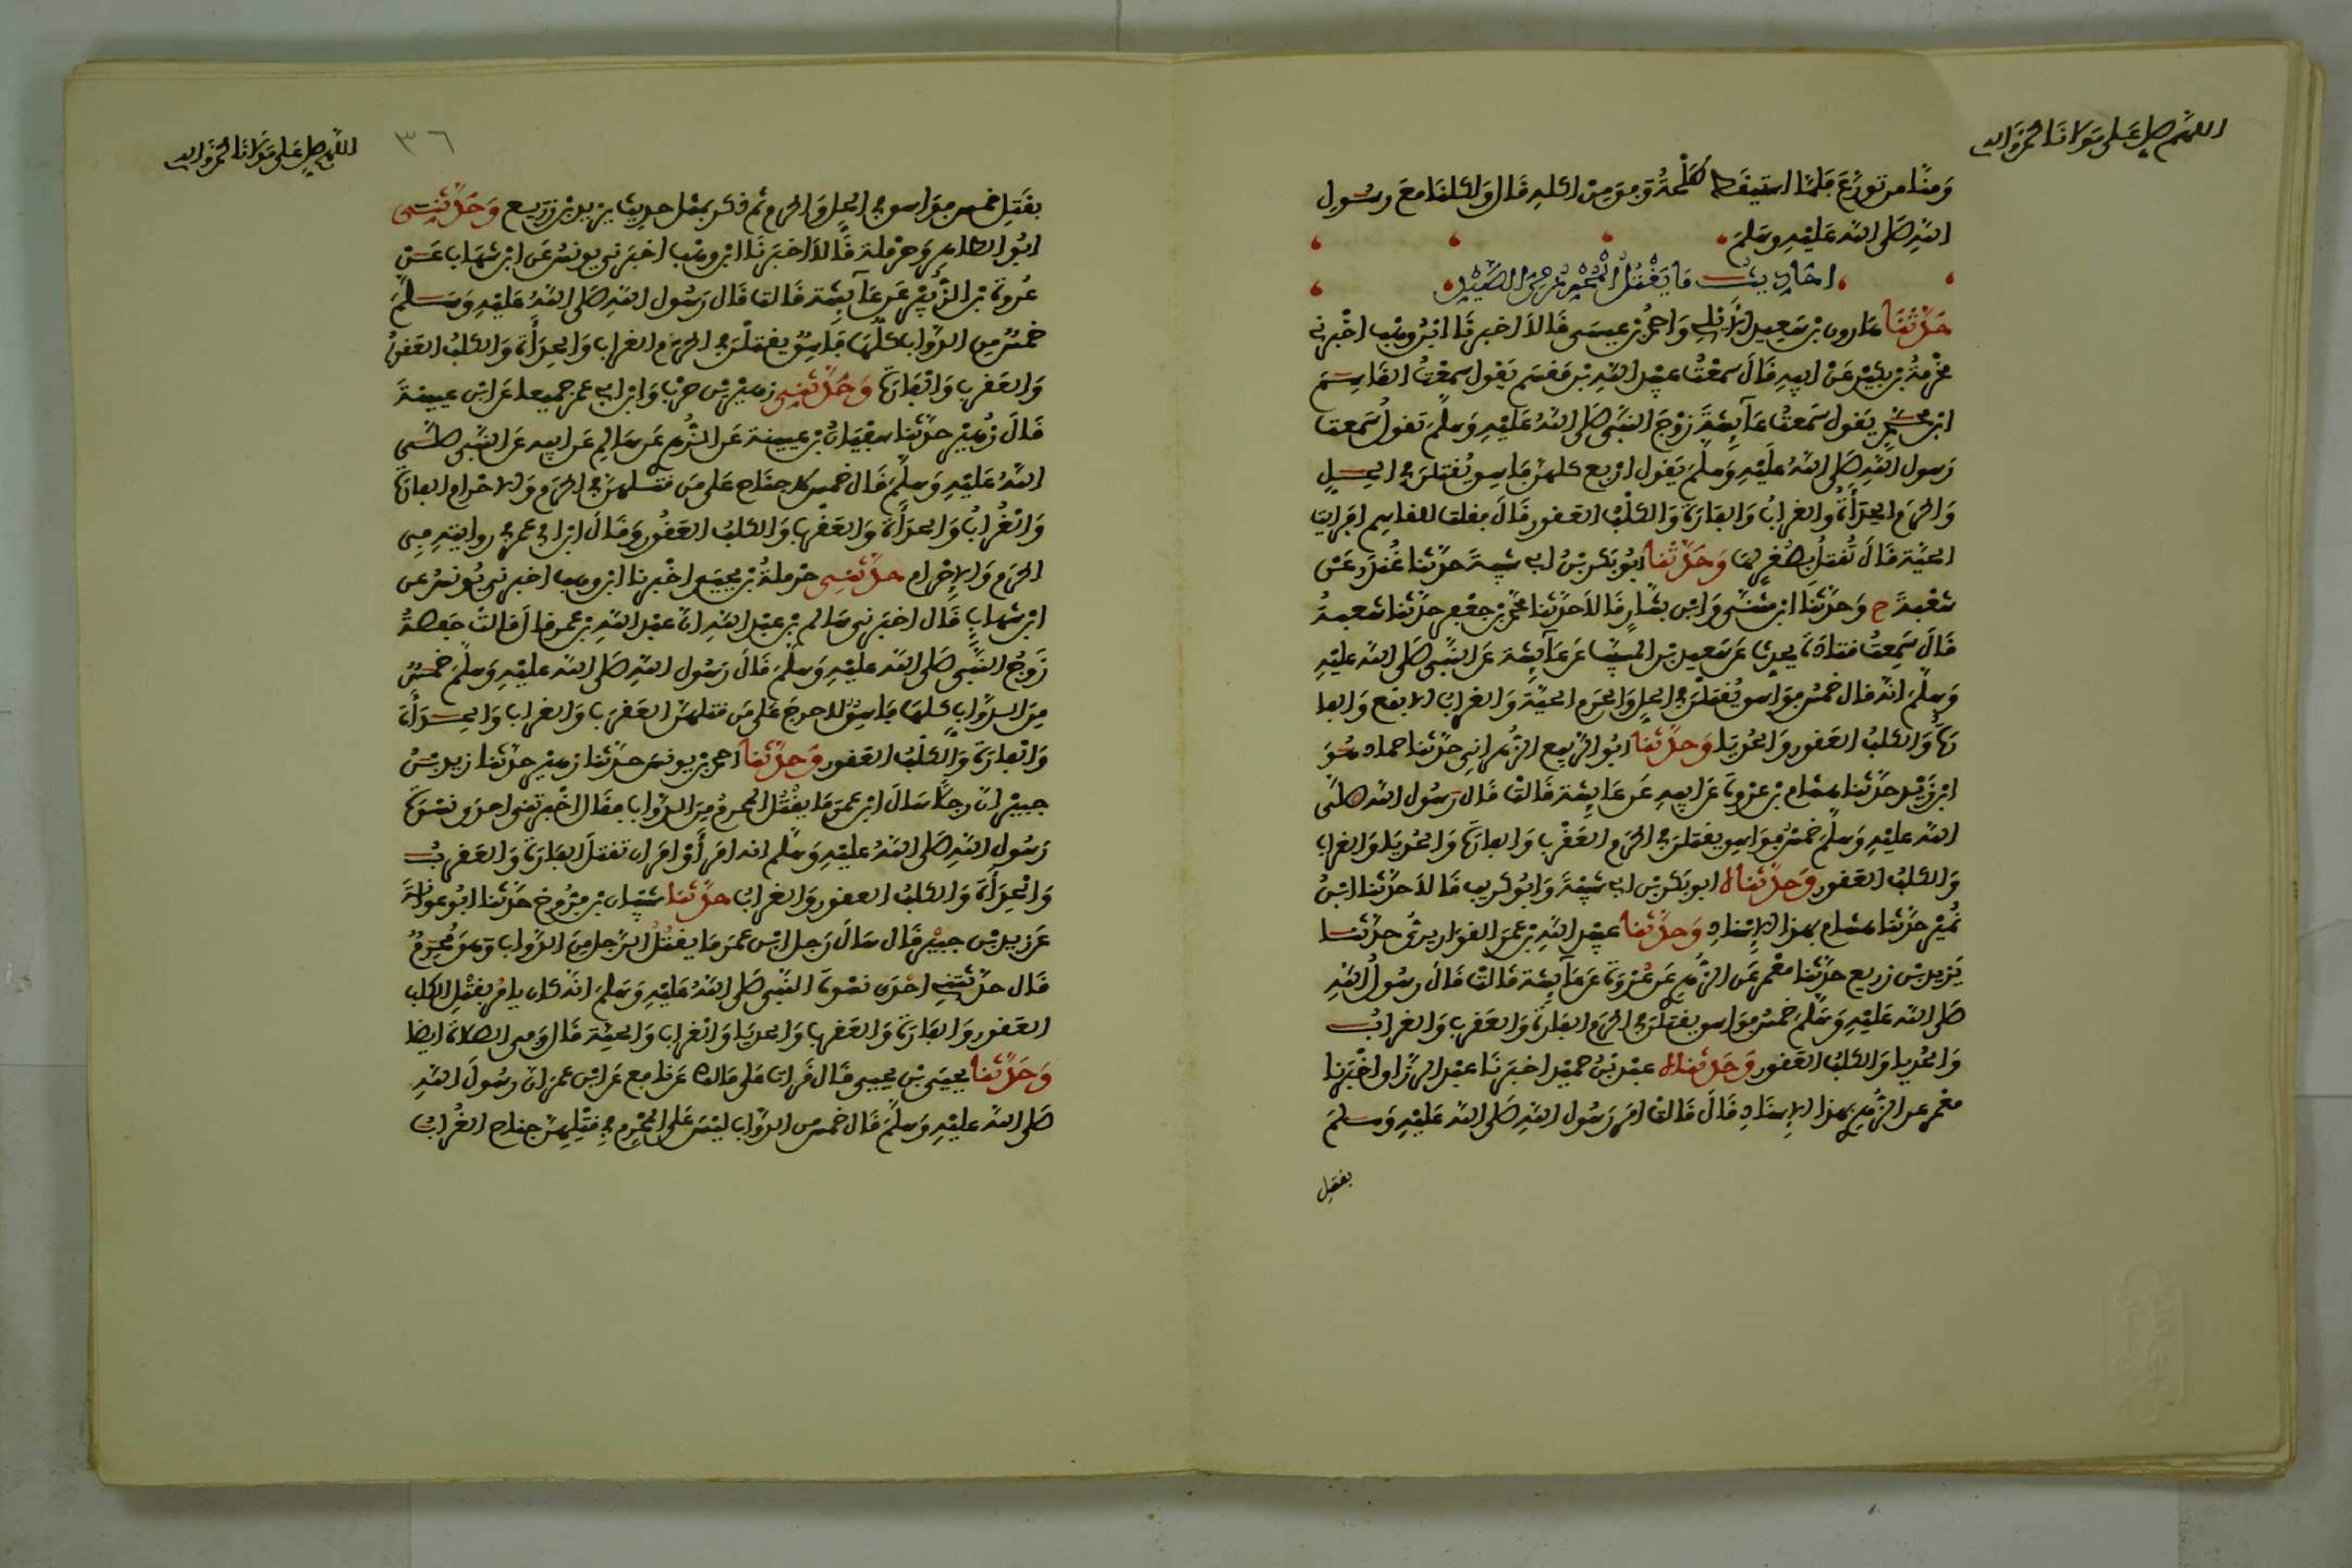 اللهم صل على مولانا محمد وآله
ومنا من تورع فلما استيقظ طلحة وفق من اكله قال واكلنا مع رسول
الله صلى الله عليه وسلم
احاديث ما يقتل المحرم من الصيد
حدثنا هارون بن سعيد الايلي واحمد بن عيسى قالا اخبرنا ابن وهب اخبرني
مخرمة بن بكير عن ابيه قال سمعت عبيد الله بن مقسم يقول سمعت القاسم
ابن محمد يقول سمعت عائشة زوج النبي صلى الله عليه وسلم تقول سمعت
رسول الله صلى الله عليه وسلم يقول اربع كلهن فاسق يقتلن في الحل
والحرم الحدأة والغراب والفارة والكلب العقور قال فقلت للقاسم افرايت
الحية قال تقتل بصغر لها وحدثنا ابو بكر بن ابي شيبة حدثنا غندر عن
شعبة ح وحدثنا ابن مثنى وابن بشار قالا حدثنا محمد بن جعفر حدثنا شعبة
قال سمعت قتادة يحدث عن سعيد بن المسيب عن عائشة عن النبي صلى الله عليه
وسلم انه قال خمس فواسق يقتلن في الحل والحرم الحية والغراب الابقع والفا
رة والكلب العقور والحديا وحدثنا ابو الربيع الزهراني حدثنا حماد هو
ابن زيد حدثنا هشام بن عروة عن ابيه عن عائشة قالت قال رسول الله صلى
الله عليه وسلم خمس فواسق يقتلن في الحرم العقرب والفارة والحديا والغراب
والكلب العقور وحدثناه ابو بكر بن ابي شيبة وابو كريب قالا حدثنا ابن
نمير حدثنا هشام بهذا الاسناد وحدثنا عبيد الله بن عمر القواريري حدثنا
يزيد بن زريع حدثنا معمر عن الزهري عن عروة عن عائشة قالت قال رسول الله
صلى الله عليه وسلم خمس فواسق يقتلن في الحرم الفارة والعقرب والغراب
والحديا والكلب العقور وحدثناه عبد بن حميد اخبرنا عبد الرزاق اخبرنا
معمر عن الزهري بهذا الاسناد قال قالت امر رسول الله صلى الله عليه وسلم
بقتل
اللهم صل على مولانا محمد وآله
٣٦
بقتل خمس فواسق في الحل والحرم ثم ذكر بمثل حديث يزيد بن زريع وحدثني
ابو الطاهر وحرملة قالا اخبرنا ابن وهب اخبرني يونس عن ابن شهاب عن
عروة بن الزبير عن عائشة قالت قال رسول الله صلى الله عليه وسلم
خمس من الدواب كلها فاسق يقتلن في الحرم الغراب والحدأة والكلب العقور
والعقرب والفارة وحدثني زهير بن حرب وابن ابي عمر جميعا عن ابن عيينة
قال زهير حدثنا سفيان بن عيينة عن الزهري عن سالم عن ابيه عن النبي صلى
الله عليه وسلم قال خمس لا جناح على من قتلهن في الحرم والاحرام الفارة
والغراب والحدأة والعقرب والكلب العقور وقال ابن ابي عمر في روايته في
الحرم والاحرام حدثني حرملة بن يحيى اخبرنا ابن وهب اخبرني يونس عن
ابن شهاب قال اخبرني سالم بن عبد الله ان عبد الله بن عمر قال قالت حفصة
زوج النبي صلى الله عليه وسلم قال رسول الله صلى الله عليه وسلم خمس
من الدواب كلها فاسق لا حرج على من قتلهن العقرب والغراب والحدأة
والفارة والكلب العقور وحدثنا احمد بن يونس حدثنا زهير حدثنا زيد بن
جبير ان رجلا سال ابن عمر ما يقتل المحرم من الدواب فقال اخبرتني احدى نسوة
رسول الله صلى الله عليه وسلم انه امر أو امران تقتل الفارة والعقرب
والحدأة والكلب العقور والغراب حدثنا شيبان بن فروخ حدثنا ابو عوانة
عن زيد بن جبير قال سال رجل ابن عمر ما يقتل الرجل من الدواب وهو محرم
قال حدثتني احدى نسوة النبي صلى الله عليه وسلم انه كان يامر بقتل الكلب
العقور والفارة والعقرب والحديا والغراب والحية قال وفي الصلاة ايضا
وحدثنا يحيى بن يحيى قال قرات على مالك عن نافع عن ابن عمر ان رسول الله
صلى الله عليه وسلم قال خمس من الدواب ليس على المحرم في قتلهن جناح الغراب